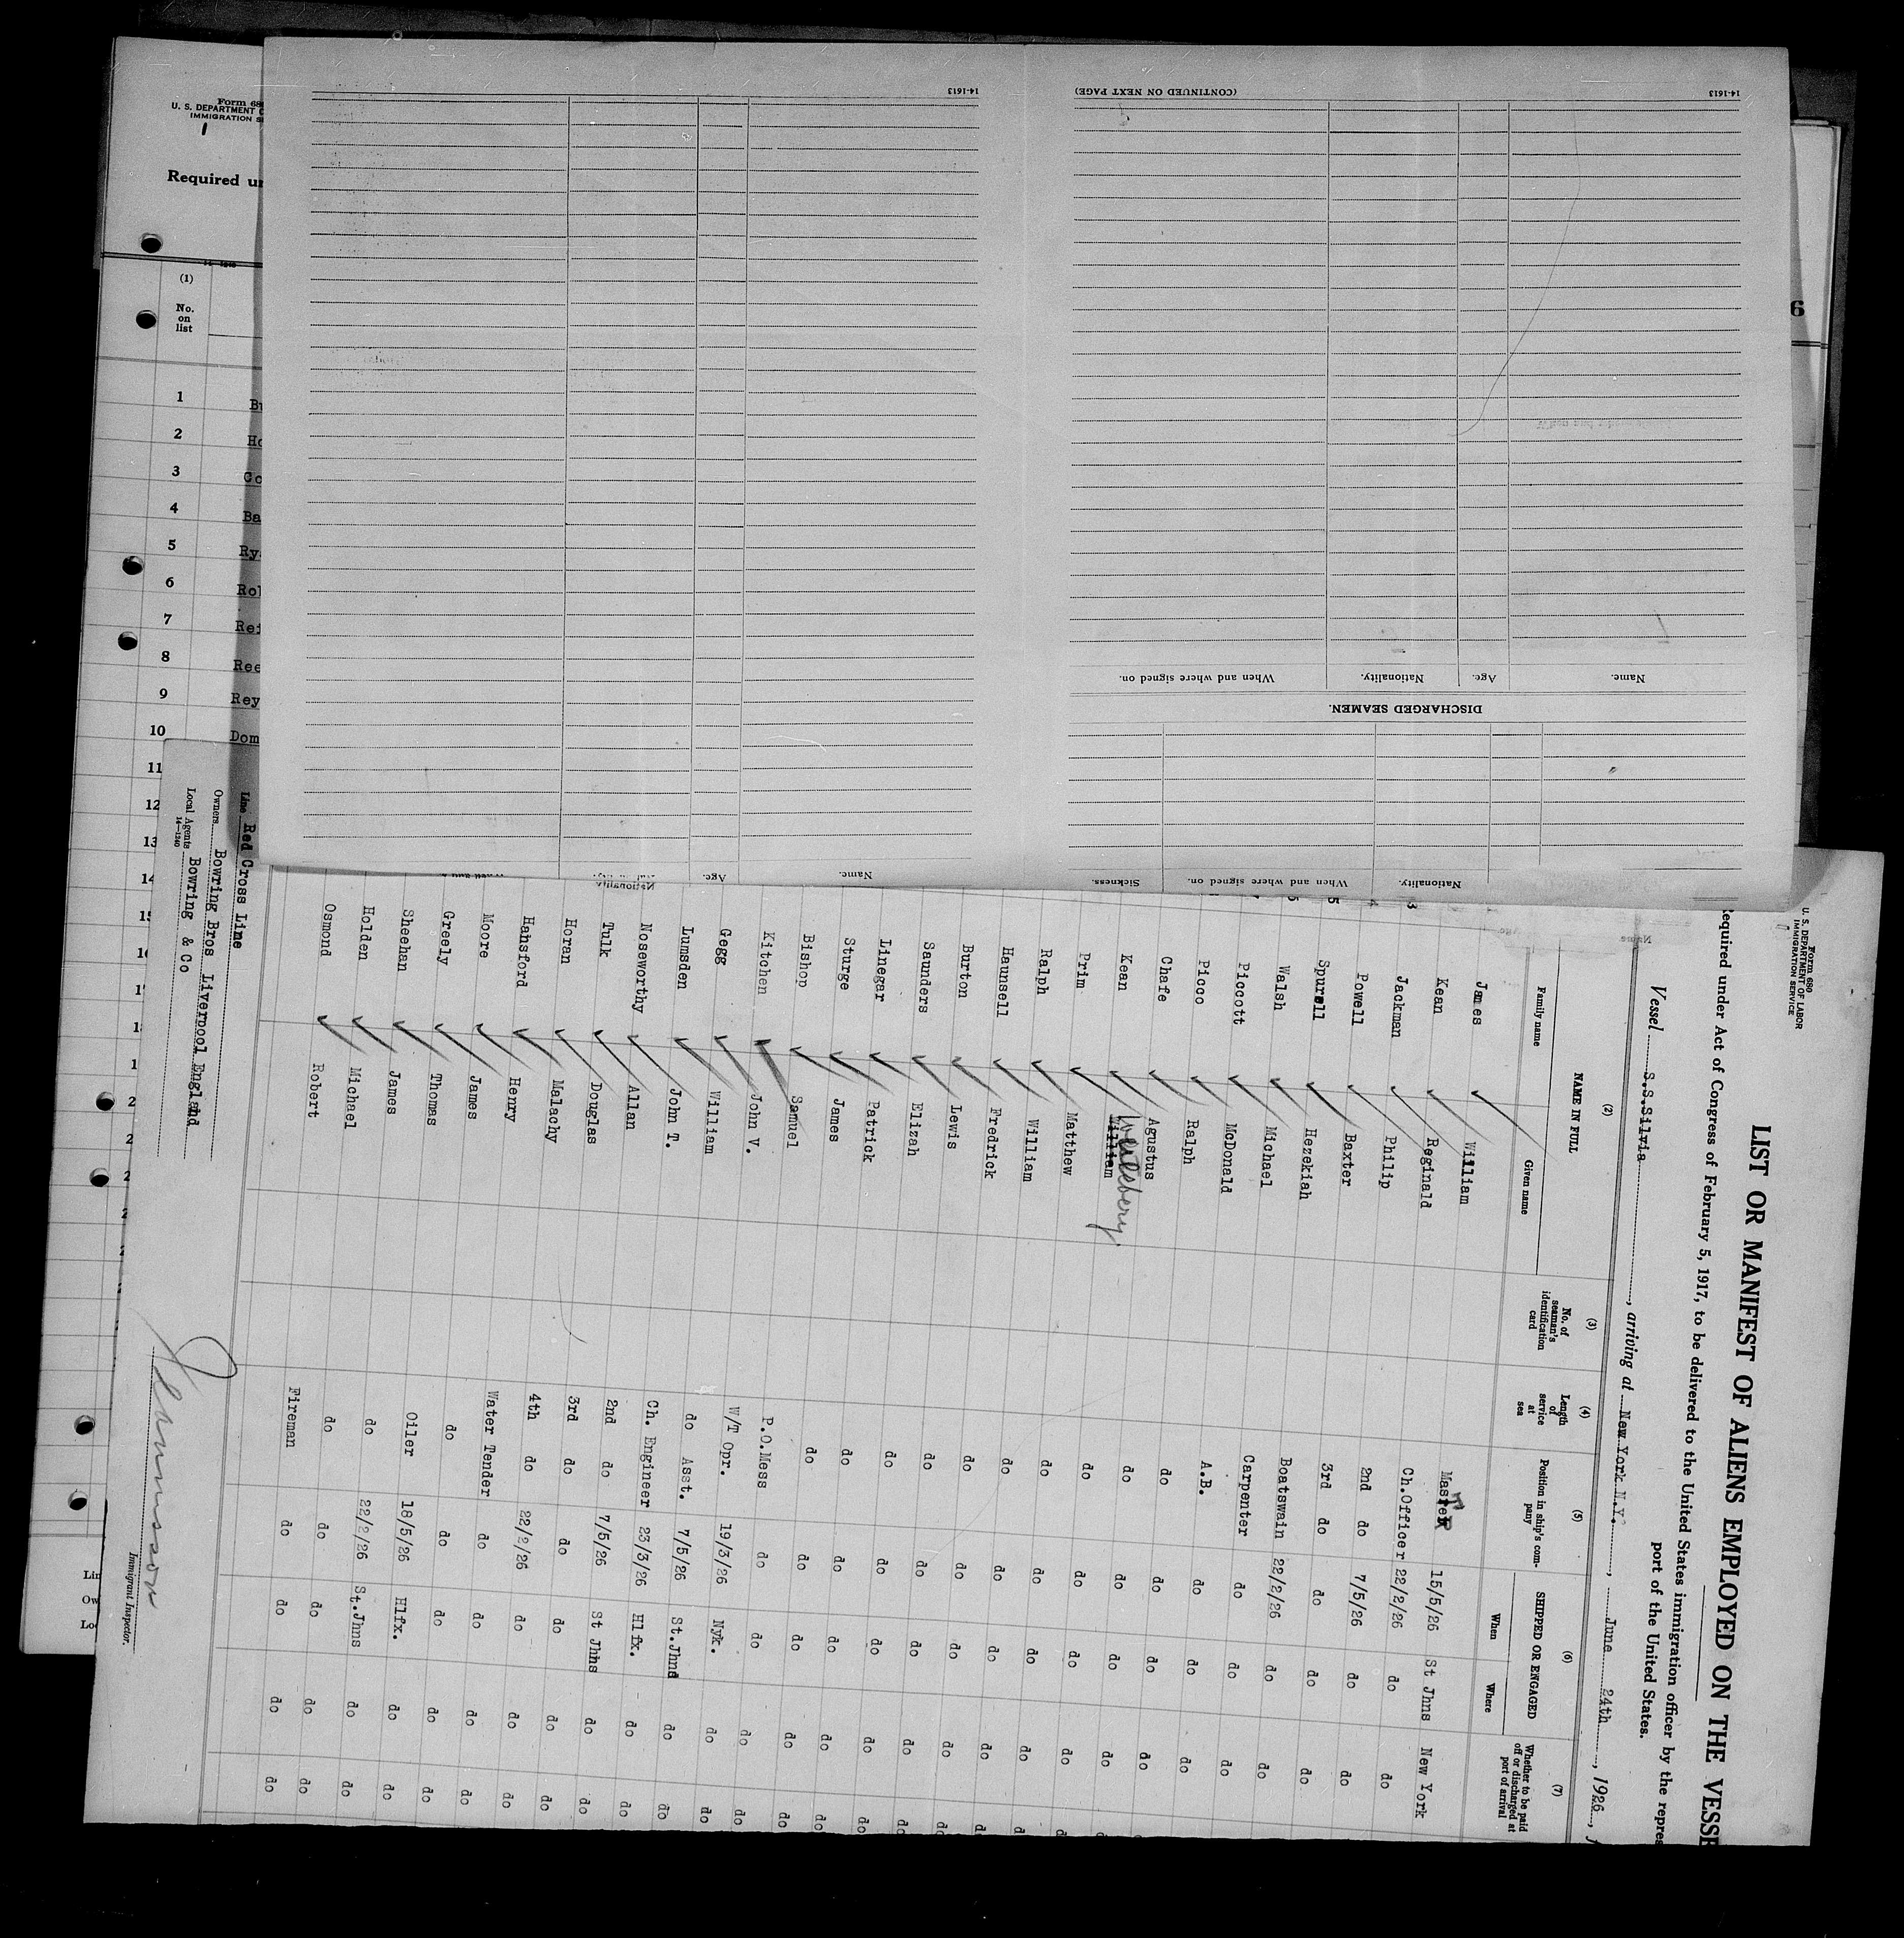 Form 680
U. S. DEPARTMENT OF LABOR
IMMIGRATION SERVICE
LIST OR MANIFEST OF ALIENS EMPLOYED ON THE VESSE
equired under Act of Congress of February 5, 1917, to be delivered to the United States immigration officer by the repres
port of the United States.
Vessel S.S.Silvia, arriving at New York N.Y., June 24th, 1926, f
(2) (3) (4) (5) (6) (7)
NAME IN FULL
Family name Given name
No. of seaman's identification card
Length of service at sea
Position in ship's company
SHIPPED OR ENGAGED
When Where
Whether to be paid off or discharged at port of arrival
James William Master 15/5/26 St Jhns New York
Kean Reginald Ch.Officer 22/2/26 do do
Jackman Philip 2nd do 7/5/26 do do
Powell Baxter 3rd do do do do
Spurell Hezekiah Boatswain 22/2/26 do do
Walsh Michael Carpenter do do do
Piccott McDonald A.B. do do do
Picco Ralph do do do do
Chafe Agustus do do do do
Kean William do do do do
Prim Matthew do do do do
Ralph William do do do do
Haunsell Fredrick do do do do
Burton Lewis do do do do
Saunders Elizah do do do do
Linegar Patrick do do do do
Sturge James do do do do
Bishop Samuel P.O.Mess do do do
Kitchen John V. W/T Opr. 19/3/26 Nyk. do
Gegg William do Asst. 7/5/26 St.Jhns do
Lumsden John T. Ch. Engineer 23/3/26 Hlfx. do
Noseworthy Allan 2nd do 7/5/26 St Jhns do
Tulk Douglas 3rd do do do do
Horan Malachy 4th do 22/2/26 do do
Hansford Henry Water Tender do do do
Moore James do do do do
Greely Thomas Oiler 18/5/26 Hlfx. do
Sheehan James do 22/2/26 St.Jhns do
Holden Michael do do do do
Osmond Robert Fireman do do do
Line Red Cross Line
Owners Bowring Bros Liverpool England
Local Agents Bowring & Co
14—1240
Immigrant Inspector.
14-1613
(CONTINUED ON NEXT PAGE)
14-1613
Name. Age. Nationality. When and where signed on.
DISCHARGED SEAMEN.
Nationality. When and where signed on. Sickness.
Name. Age. Nationality.
Form 68
U. S. DEPARTMENT
IMMIGRATION S
Required un
(1)
No.
on
list
1 B
2 Ho
3 Co
4 Ba
5 Ry
6 Rol
7 Rei
8 Ree
9 Rey
10 Dom
11
12
13
14
6
Lin
Ow
Loc